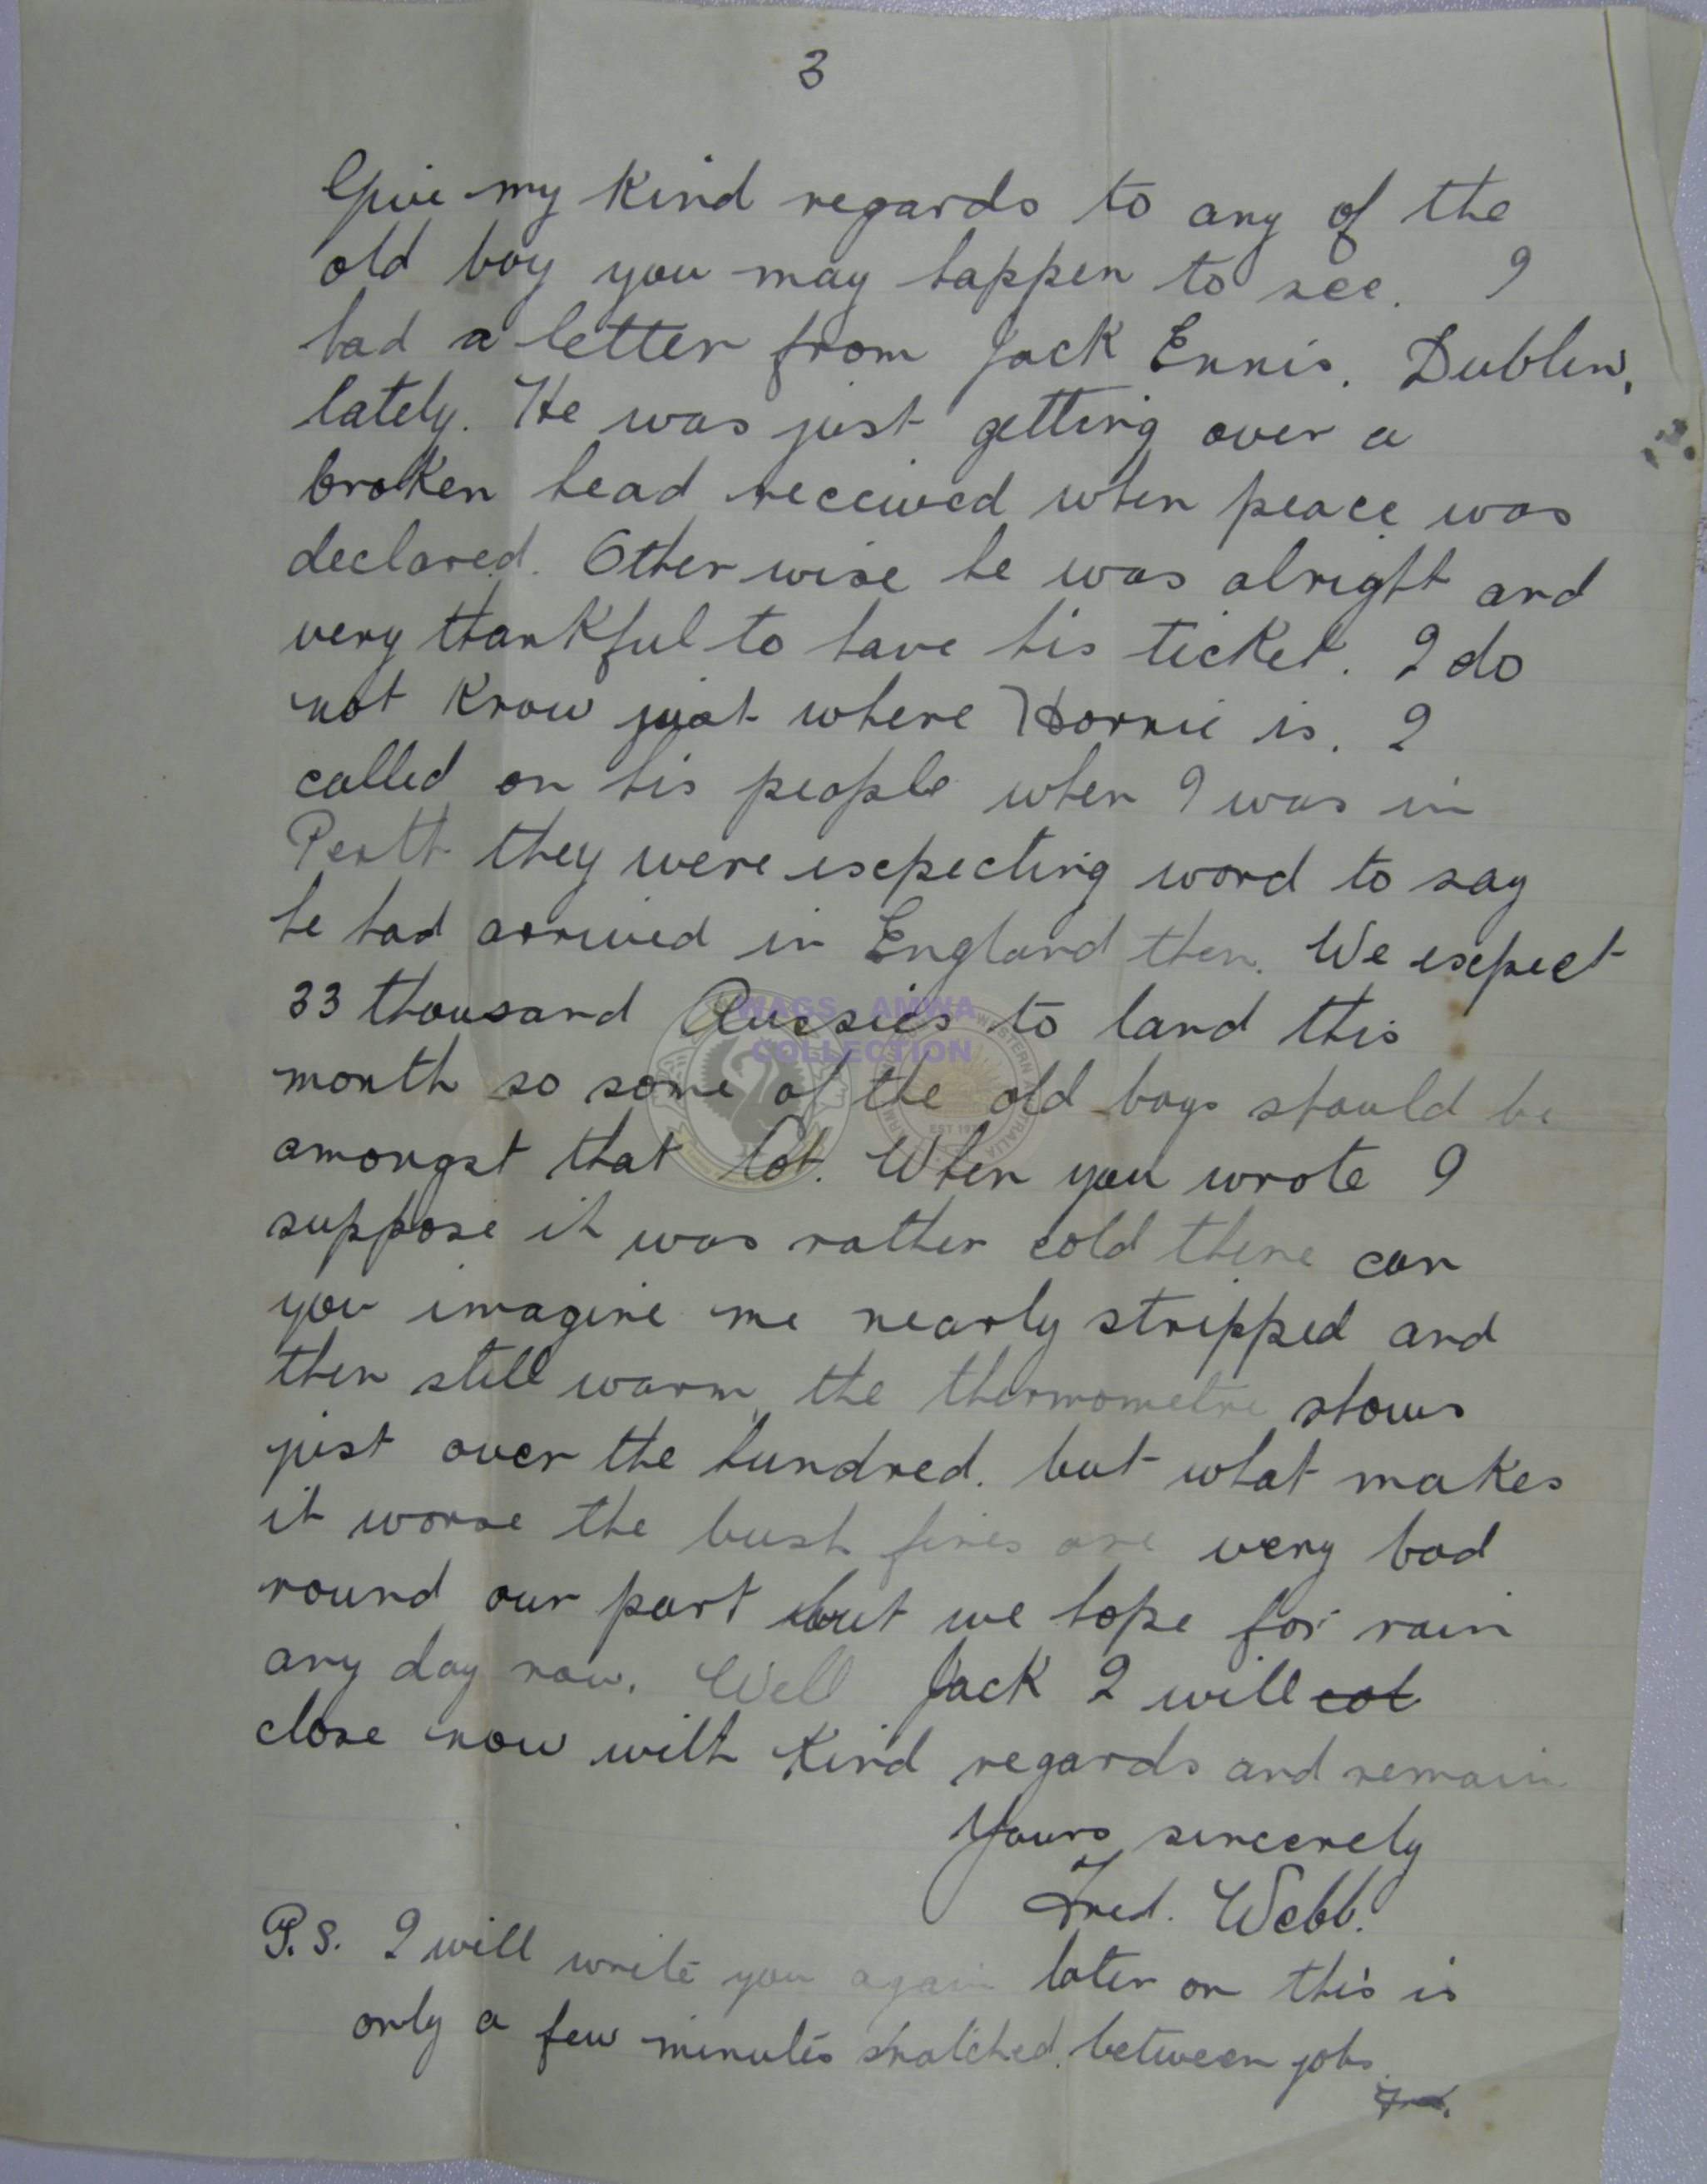 3
Give my kind regards to any of the
old boy you may happen to see. I
had a letter from Jack Ennis. Dublin,
lately. He was just getting over a
broken head received when peace was
declared. Otherwise he was alright and
very thankful to have his ticket. I do
not know just where Horrie is. I
called on his people when I was in
Perth they were expecting word to say
he had arrived in England then. We expect
33 thousand Aussies to land this
WAGS AMWA
COLLECTION
month so some of the old boys should be
EST
amongst that lot. When you wrote I
suppose it was rather cold there can
you imagine me nearly stripped and
then still warm, the thermometre shows
just over the hundred. but what makes
it worse the bush fires are very bad
round our part but we hope for rain
any day now. Well Jack I will col
close now with kind regards and remain
Yours sincerely
Fred. Webb.
P.S. I will write you again later on this is
only a few minutes snatched between jobs.
Fred.